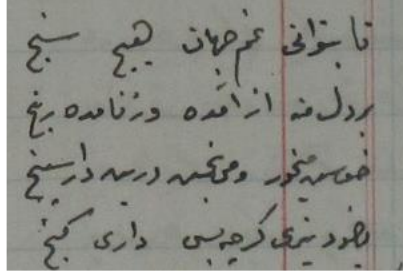 تا بتوانی غم جهان هیچ سنج
بر دل منه از آمده و نامده رنج
خوش میخور و می بخش درین دار سپنج
با خود نبری گرچه بسی داری گنج